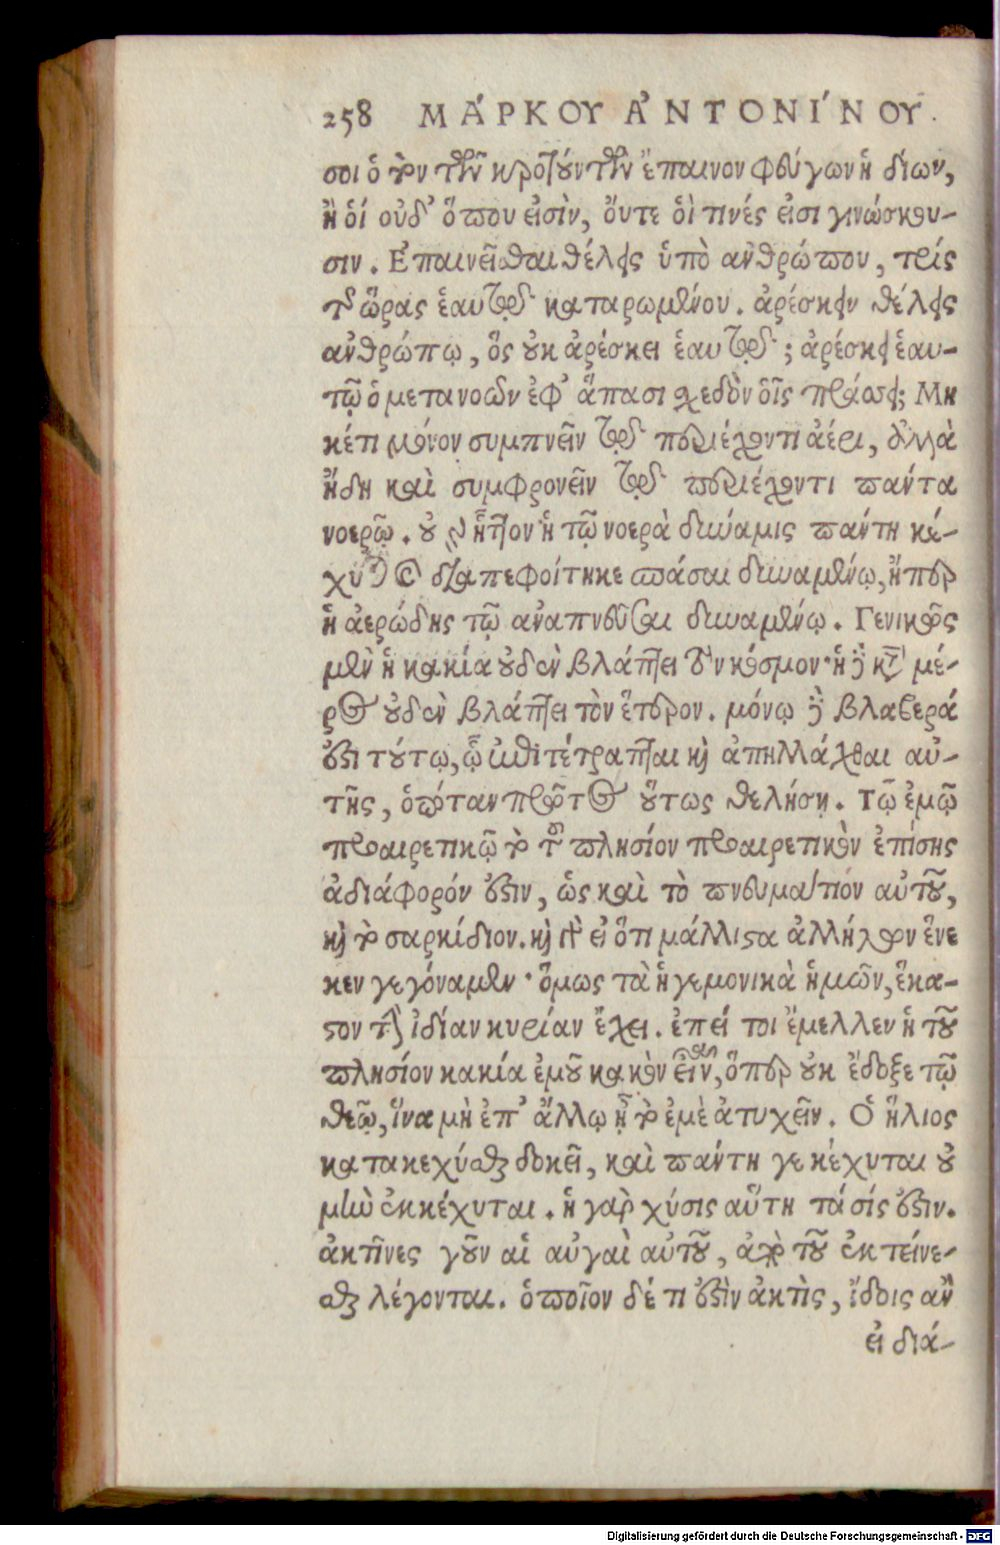 258 ΜΆΡΚΟΥ ἈΝΤΟΝΊΝΟΥ.
σοι ὁ τὸν τῶν κροτούντων ἔπαινον φεύγων ἢ δίων,
ἢ οἱ οὐδ' ὅπου εἰσὶν, ὄυτε ὁὶ τινές εἰσι γινώσκου-
σιν. Ἐπαινεῖσθαι θέλεις ὑπὸ ανθρώπου, τρίς
τῆς ὥρας ἑαυτῷ καταρωμένου. ἀρέσκειν θέλεις
ανθρώπῳ, ὃς οὐκ ἀρέσκει ἑαυτῷ; ἀρέσκει ἑαυ-
τῷ ὁ μετανοῶν ἐφ' ἅπασι σχεδὸν οἷς πράσσει; Μη
κέτι μόνον συμπνεῖν τῷ περιέχοντι ἀέρι, ἀλλὰ
ἤδη καὶ συμφρονεῖν τῷ περιέχοντι πάντα
νοερῷ. οὐ γὰρ ἧττον ἡ τῷ νοερὰ δύναμις πάντη κέ-
χυται καὶ διαπεφοίτηκε σπάσαι δυναμένῳ, ἤπερ
ἡ ἀερώδης τῷ αναπνεῦσαι δυναμένῳ. Γενικῶς
μὲν ἡ κακία οὐδὲν βλάπτει τὸν κόσμον· ἡ δὲ κατὰ μέ-
ρος οὐδὲν βλάπτει τὸν ἕτερον. μόνῳ δὲ βλαβερά
ἐστι τούτῳ, ᾧ ἐπιτέτραπται καὶ ἀπηλλάχθαι αὐ-
τῆς, ὁπόταν πρῶτος οὕτως θελήσῃ. Τῷ ἐμῷ
προαιρετικῷ τὸ τοῦ πλησίον προαιρετικὸν ἐπίσης
ἀδιάφορόν ἐστιν, ὡς καὶ τὸ πνευμάτιόν αὐτοῦ,
καὶ τὸ σαρκίδιον. καὶ γὰρ εἰ ὅτι μάλλιστα ἀλλήλων ἕνε
κεν γεγόναμεν· ὅμως τὰ ἡγεμονικὰ ἡμῶν, ἕκα-
στον τὴν ἰδίαν κυρίαν ἔχει. ἐπεί τοι ἔμελλεν ἡ τοῦ
πλησίον κακία ἐμοῦ κακὸν εἶναι, ὅπερ οὐκ ἔδοξε τῷ
θεῷ, ἵνα μὴ ἐπ' ἄλλῳ ᾖ τὸ ἐμὲ ἀτυχεῖν. Ὁ ἥλιος
κατακεχύσθαι δοκεῖ, καὶ πάντη γε κέχυται οὐ
μὴν ἐκκέχυται. ἡ γαρ χύσις αὕτη τάσίς ἐστιν.
ἀκτῖνες γοῦν αἱ αὐγαὶ αὐτοῦ, ἀπὸ τοῦ ἐκτείνε-
σθαι λέγονται. ὁποῖον δέ τι ἐστὶν ἀκτὶς, ἴδοις αν
εἰ διά-
Digitalisierung gefördert durch die Deutsche Forschungsgemeinschaft - DFG